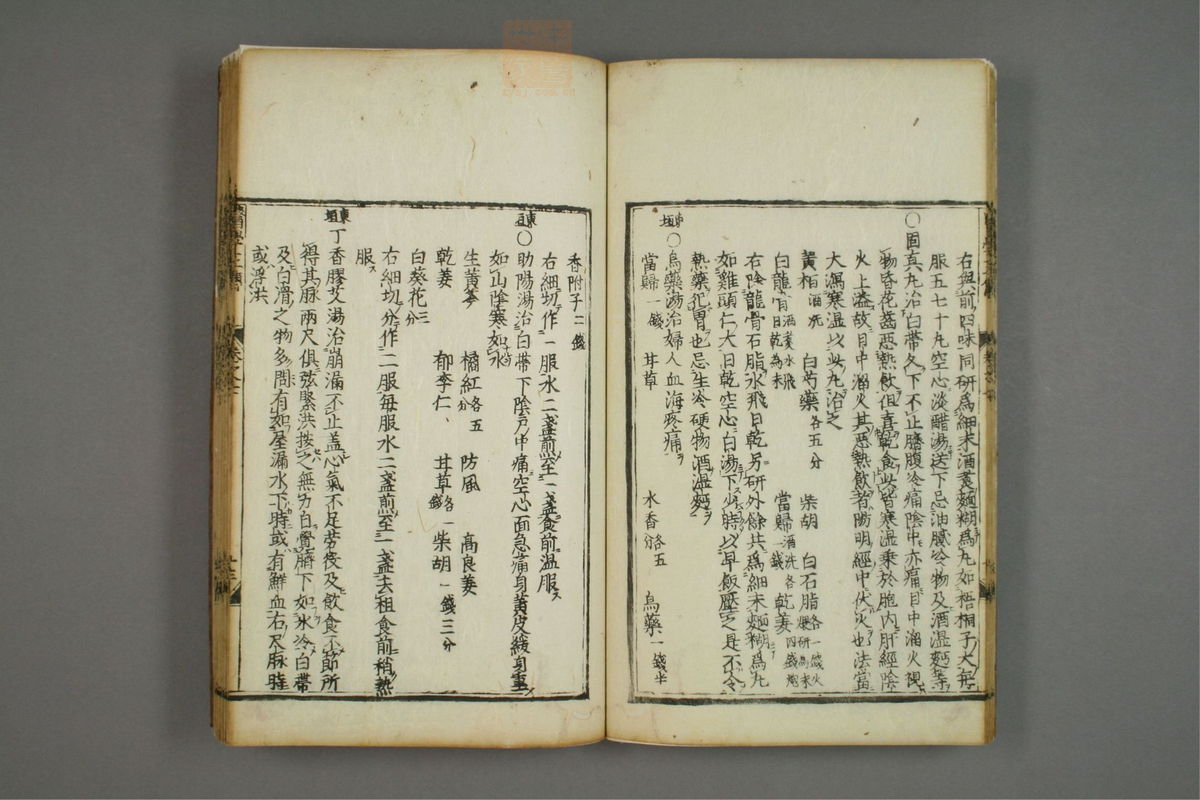 右與前四味同研爲細末酒煑麵糊爲丸如梧桐子大每
服五七十丸空心淡醋湯送下忌油膩冷物及酒濕麵等
○固真丸治白帶久下不止臍腹冷痛陰中亦痛目中溜火視
物昏花齒惡熱飲但喜乾食此皆寒濕乘於胞內肝經陰
火上溢故目中溜火其惡熱飲者陽明經中伏火也法當
大瀉寒湿以此丸治之
黃栢酒洗 白芍藥各五分 柴胡 白石脂各一錢火煆研爲末
白龍骨酒煑水飛日乾為末 當歸酒洗各一錢 乾姜四錢炮
右除龍骨石脂水飛日乾另研外餘共爲細末麵糊爲丸
如雞頭仁大日乾空心白湯下少時以早飯壓之是不令
熱藥犯胃也忌生冷硬物酒湿麵
東垣○烏藥湯治婦人血海疼痛
當歸一錢 甘草 木香各五分 烏藥一錢半
香附子二錢
右細切作一服水二盞煎至一盞食前温服
東垣○助陽湯治白帶下陰戶中痛空心面急痛身黃皮緩身重
如山陰寒如氷
生黃芩 橘紅各五分 防風 高良姜
乾姜 郁李仁 甘草各一錢 柴胡一錢三分
白葵花三分
右細切分作二服每服水二盞煎至一盞去柤食前稍熱
服
東垣丁香膠艾湯治崩漏不止盖心氣不足勞役及飲食不節所
得其脉兩尺俱弦緊洪按之無力自覺臍下如氷冷白帶
及白滑之物多間有如屋漏水下時或有鮮血右尺脉時
或浮洪